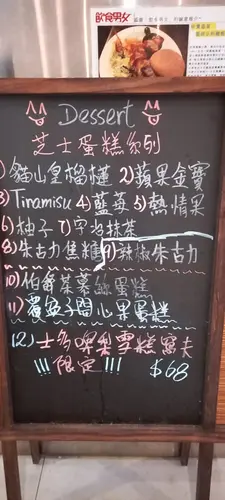 飲食男女
Dessert
芝士蛋糕系列
1) 貓山皇榴槤 2) 蘋果金寶
3) Tiramisu 4) 藍莓 5) 熱情果
6) 柚子 7) 宇治抹茶
8) 朱古力焦糖 9) 辣椒朱古力
10) 伯爵茶慕絲蛋糕
11) 覆盆子開心果蛋糕
12) 士多啤梨雪糕窩夫
!!! 限定 !!! $68